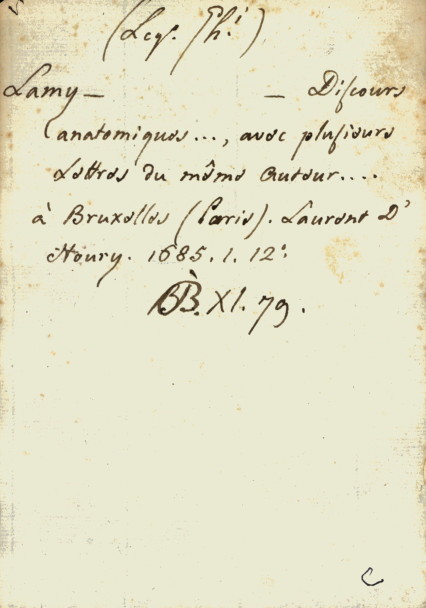 (Legs. Ph.i)
Lamy — — Discours
anatomiques..., avec plusieurs
Lettres du même Auteur....
à Bruxelles (Paris). Laurent D'
Houry. 1685. 1. 12°.
BB. XI. 79.
C